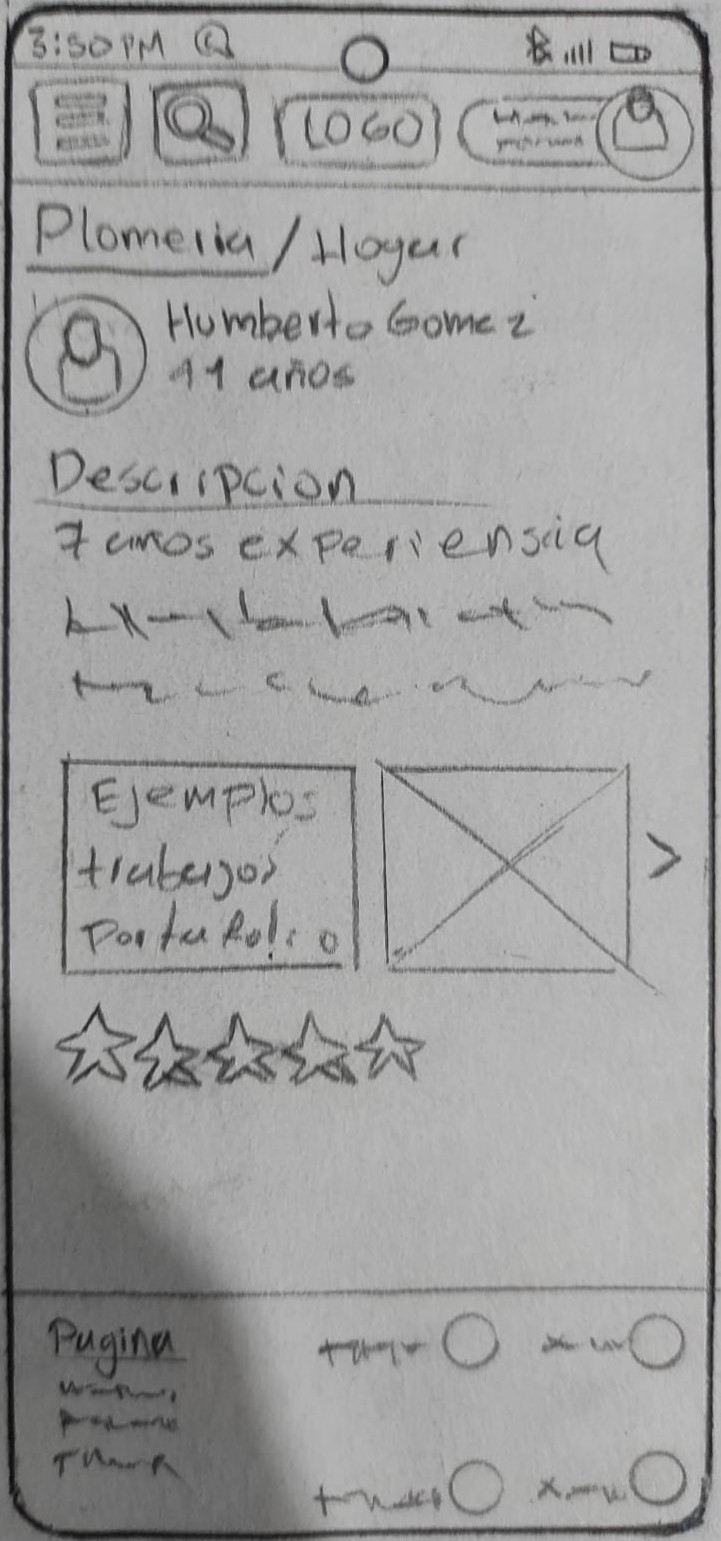 3:50 PM
LOGO
Plomeria / Hogar
Humberto Gomez
41 años
Descripcion
7 años experiensia
Ejemplos
trabajos
Portafolio
Pagina